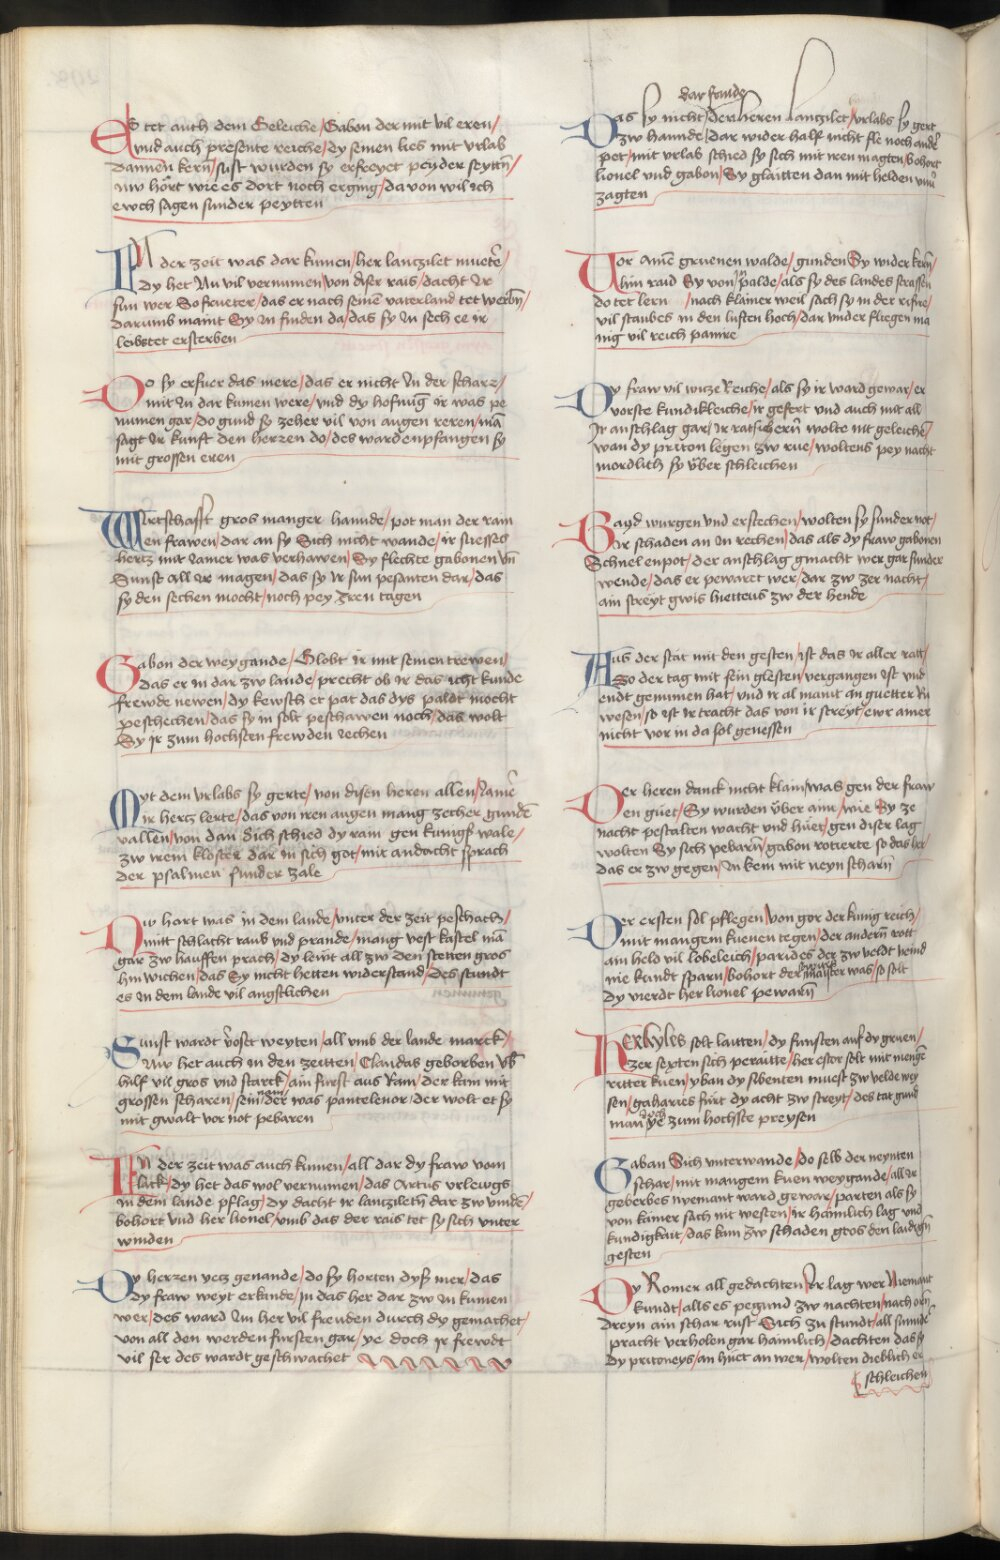 Es tet auch dem Geleiche / Gabon der mit vil eren /
vnd auch presente reiche / dy seinen lies mit vrlab
dannen kern / sust wurden sy erfreyet peyder seyttn /
Nw hört wie es dort noch erging / da von wil ich
ewch sagen sunder peytten
IN der zeit was dar kumen / her lanczilet muetr /
dy het Nu vil vernumen / von diser rais / dacht Ir
sun wer So frueter / das er nach seinem vaterland tet werbn /
darumb maint Sy In finden da / das sy In sech ee ir
leib tet ersterben
Do sy erfuer das mere / das er nicht In der schare /
mit In dar kumen were / vnd dy hofnug Ir was pe
numen gar / do gund sy zeher vil von augen reren / man
sagt Ir kunft den herzen do / des ward enpfangen sy
mit grossen eren
Wirtschafft gros manger hannde / pot man der rain
en frawen / dar an sy Sich nicht wande / ir suesses
hertz mit Jamer was verhawen / Sy flechte gabonen vn
Sunst all Ire magen / das sy Ir sun pesanten dar / das
sy den sechen mocht / noch pey Iren tagen
Gabon der weygande / Globt ir mit seinen trewen /
das er in dar zw lande / precht ob ir das icht kunde
frewde newen / dy kewsch er pat das dys paldt mocht
peschechen / das sy in solt peschawen noch / das wolt
Sy ir zum hochsten frewden Iechen
Myt dem vrlabs sy gerte / von disen heren allen / Jamer
ir hertz lerte / das von iren augen mang zecher gunden
vallen / von dan Sich schied dy rain gen kungk wale /
zw irem kloster dar in sich got / mit andacht sprach
der psalmen sunder zale
Nw hort was in dem lande / vnter der zeit peschach /
mitt schlacht raub vnd prande / mang vest kastel man
gar zw hauffen prach / dy lewt all zw den steten gros
hin wichen / das Sy nicht hetten widerstand / des stundt
es in dem lande vil angstlichen
Sunst wardt vöst weyten / all vmb der lande marck /
Nw het auch in den zeitten / Claudas geborben vb
hilf vil gros vnd starck / ain furst aus Ram / der kam mit
grossen scharen / sein nam der was pantelenor / der wolt et sy
mit gwalt vor not pebaren
IN der zeit was auch kumen / all dar dy fraw vom
lack / dy het das wol vernumen / das Artus vrlewgs
in dem lande pflag / dy dacht ir lanziletn dar zw vinden /
bohort vnd her lionel / vmb das der rais tet sy sich vnter
winden
Dy herzen vetz genande / do sy horten dysz mer / das
dy fraw weyt erkande / in das her dar zw In kumen
wer / des ward Im her vil freuden durch dy gemachet /
von all den werden fursten gar / ye doch ir frewdt
vil ser des wardt geschwachet
dar fande
Das sy nicht / der heren lanzilet / vrlabs sy gert
zw hannde / dar wider half nicht fle noch ander
pet / mit vrlab schied sy sich mit iren magten / bohort
lionel vnd gabon / Sy glaitten dan mit helden vnuer
zagten
Vor Aine gruenen walde / gunden Sy wider kern /
hin raid Sy von In palde / als sy des landes strassen
do tet lern / nach klainer weil sach sy in der rifire /
vil staubes in den luften hoch / dar vnder fliegen ma
nig vil reich panire
Dy fraw vil witze Reiche / als sy ir ward gewar / er
vorste kundikleiche / ir gefert vnd auch mit all
Ir anschlag gar / Ir ratsichern wolte nit geleichen /
wan dy priton legen zw rue / woltens pey nacht
mordlich sy vber schleichen
Bayd wurgen vnd erstechen / wolten sy sunder not /
Ir schaden an In rechen / das als dy fraw gabonen
Schnel enpot / der anschlag gmacht wer gar sunder
wende / das er pewaret wer / dar zw zer nacht /
ain streyt gwis hiettens zw der hende
Aus der stat mit den gesten / ist das ir aller ratt /
So der tag mit sein glesten / vergangen ist vnd
endt genumen hat / vnd ir al maint an guetter Ru
wesen / so ist ir tracht das von ir streyt / ewr ainer
nicht vor in da sol genessen
Der heren danck nicht klain / was gen der fraw
en guet / Sy wurden vber ain / wie Sy ze
nacht pestalten wacht vnd huet / gen diser lag
wolten Sy sich pebarn / gabon rotierte so das her
das er zw gegen / In kem mit neyn scharn
Der ersten sol pflegen / von gor der kunig reich /
mit mangem kuenen tegen / der andern rott
ain held vil lobeleich / parides der zw veldt weind
nie kundt sparn / bohort der maister was / so solt
dy vierdt her lionel pewarn
HErkyles solt laitten / dy funften auf dy gruen /
Zer sexten sich peraitte / her estor solt mit mengem
ritter kuen / yban dy sibenten muest zw velde wey
sen / gaharies furt dy acht zw streyt / des tat gund
man doch ye zum hochste preysen
Gaban Sich vnterwande / do selb der neynten
schar / mit mangem kuen weygande / all Ir
geberbes nyemant ward gewar / parten als sy
von kainer sach nit westen / ir haimlich lag vnd
kundigkait / das kam zw schaden gros den laidign
gesten
Dy Romer all gedachten / Ir lag wer Niemant
kundt / alls es pegund zw nachten / nach orn
dreyn ain schar rust Sich zu stundt / all sunder
pracht verholen gar haimlich / dachten das sy
dy pritoneys / an huet an wer / wolten dieblich er
schleichen